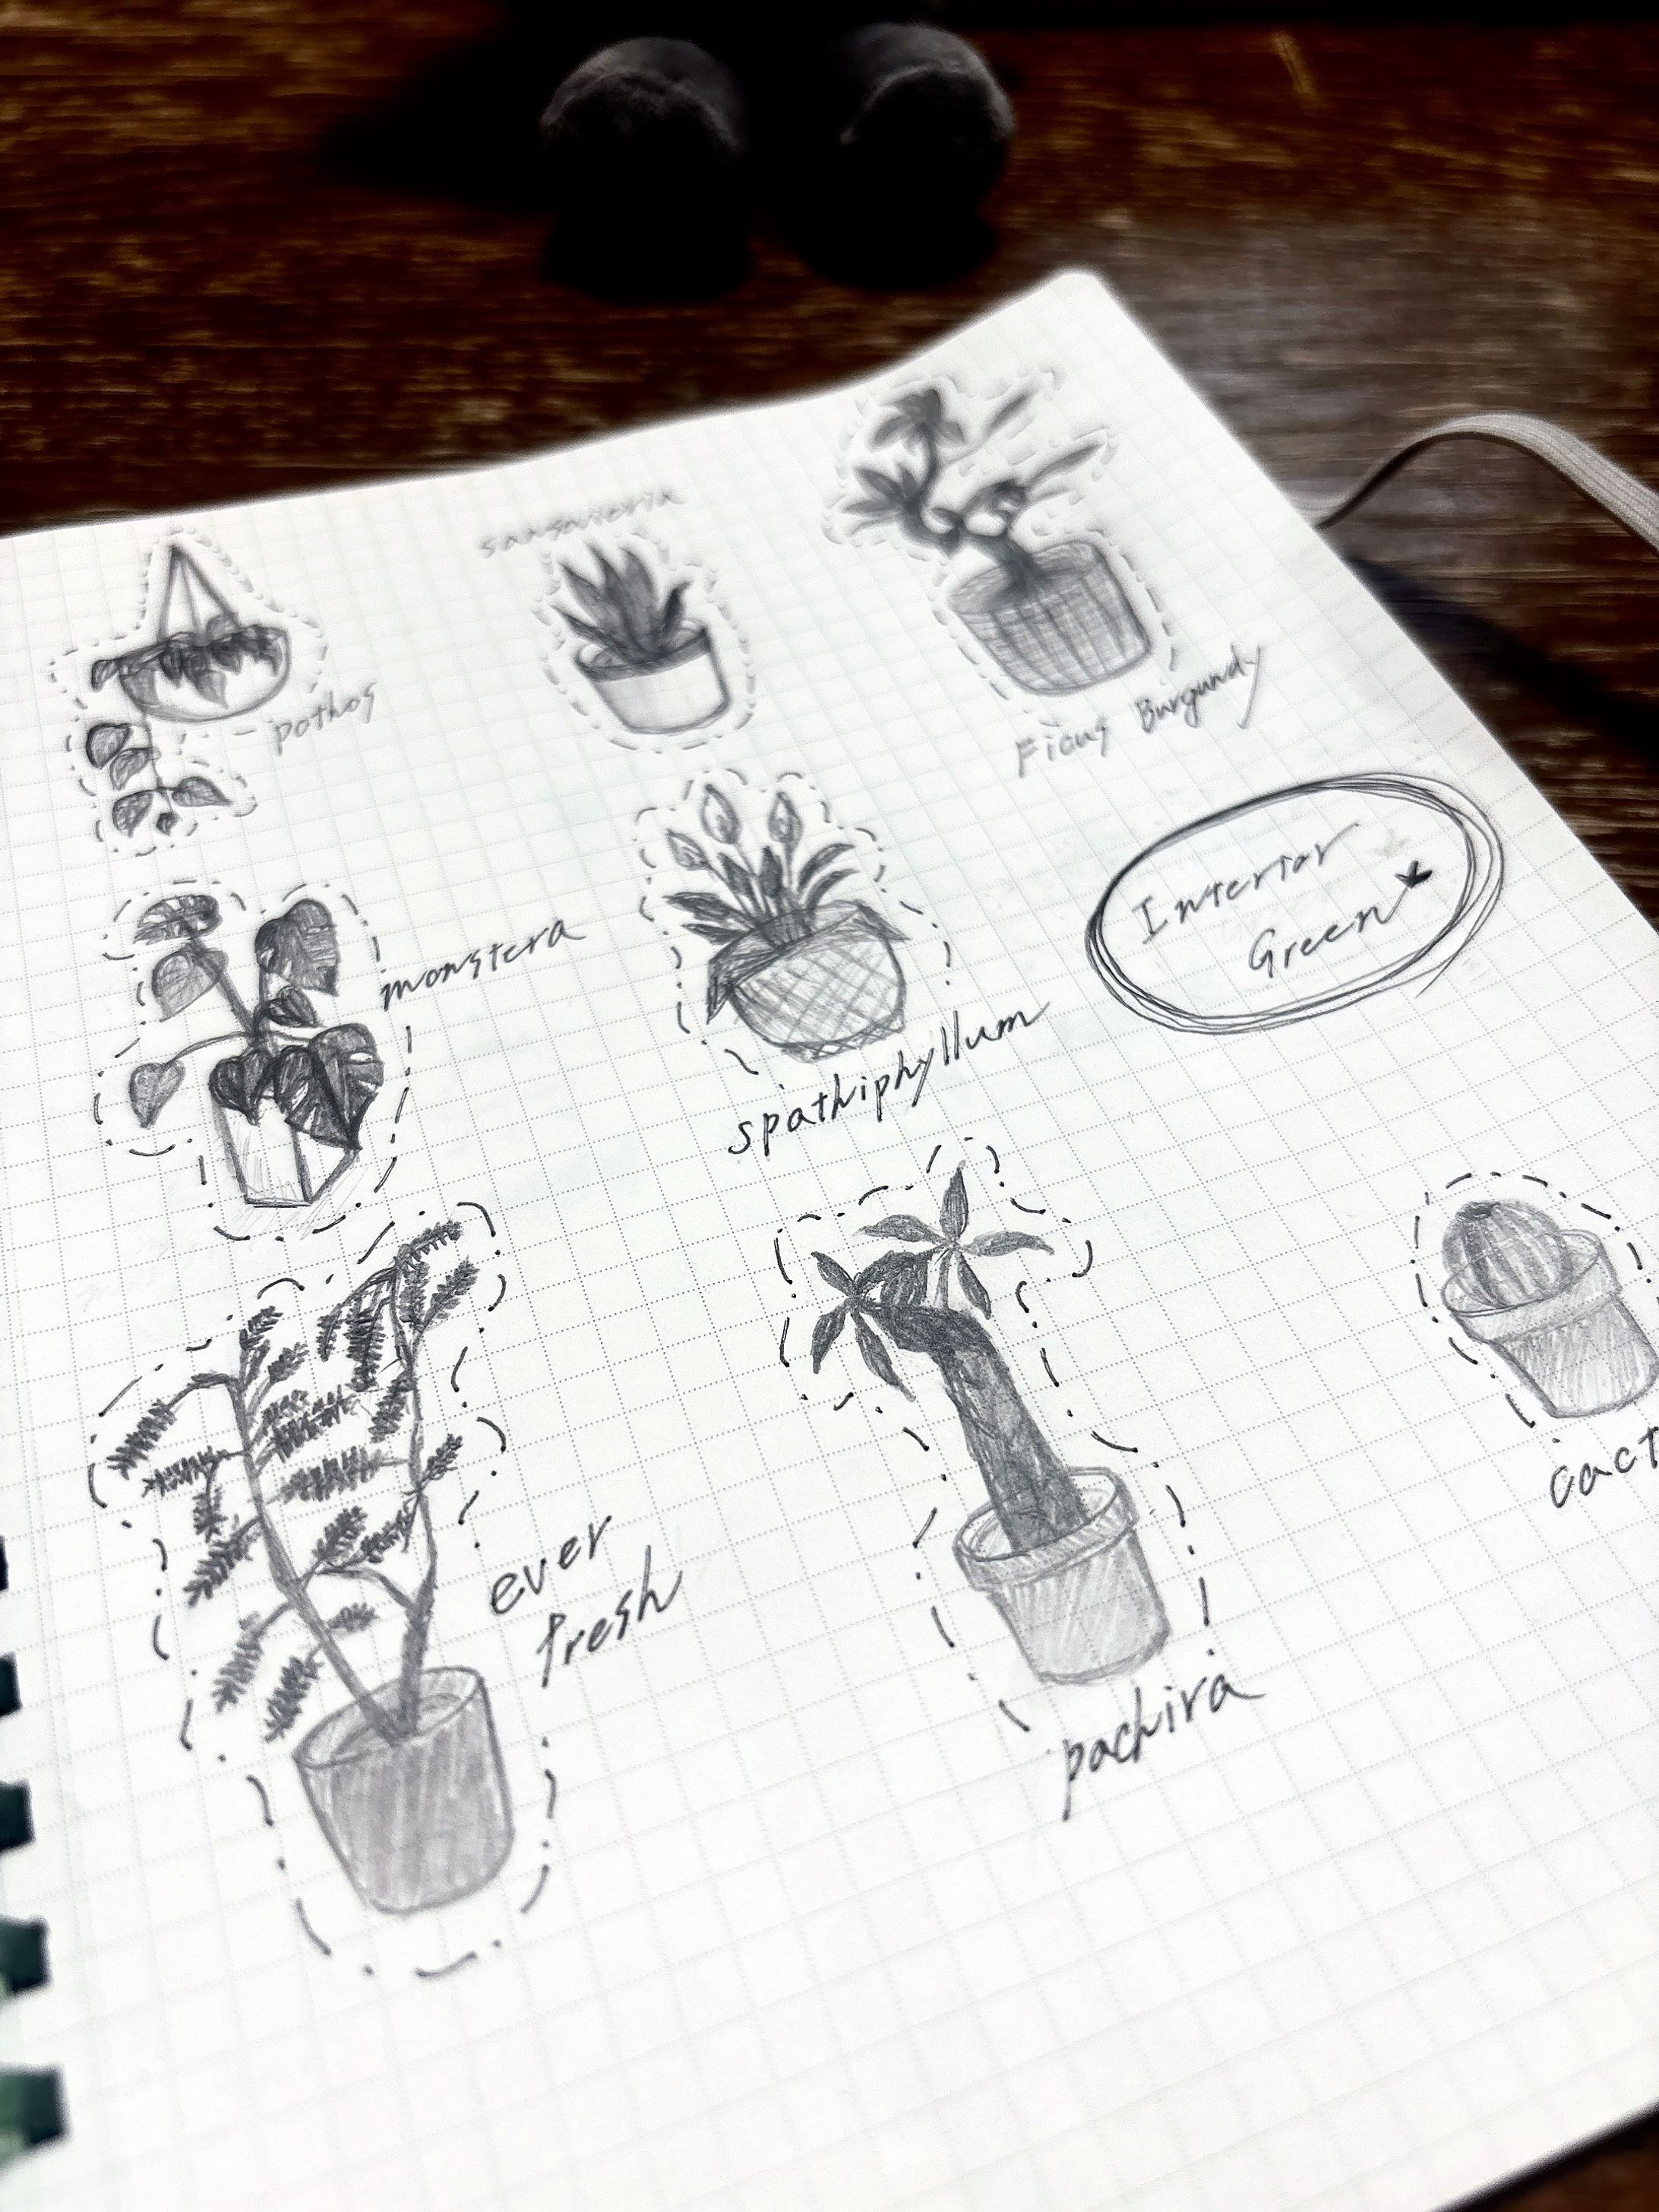 sansevieria
pothos
Ficus Burgundy
monstera
Interior
Green
spathiphyllum
ever
fresh
cact
pachira